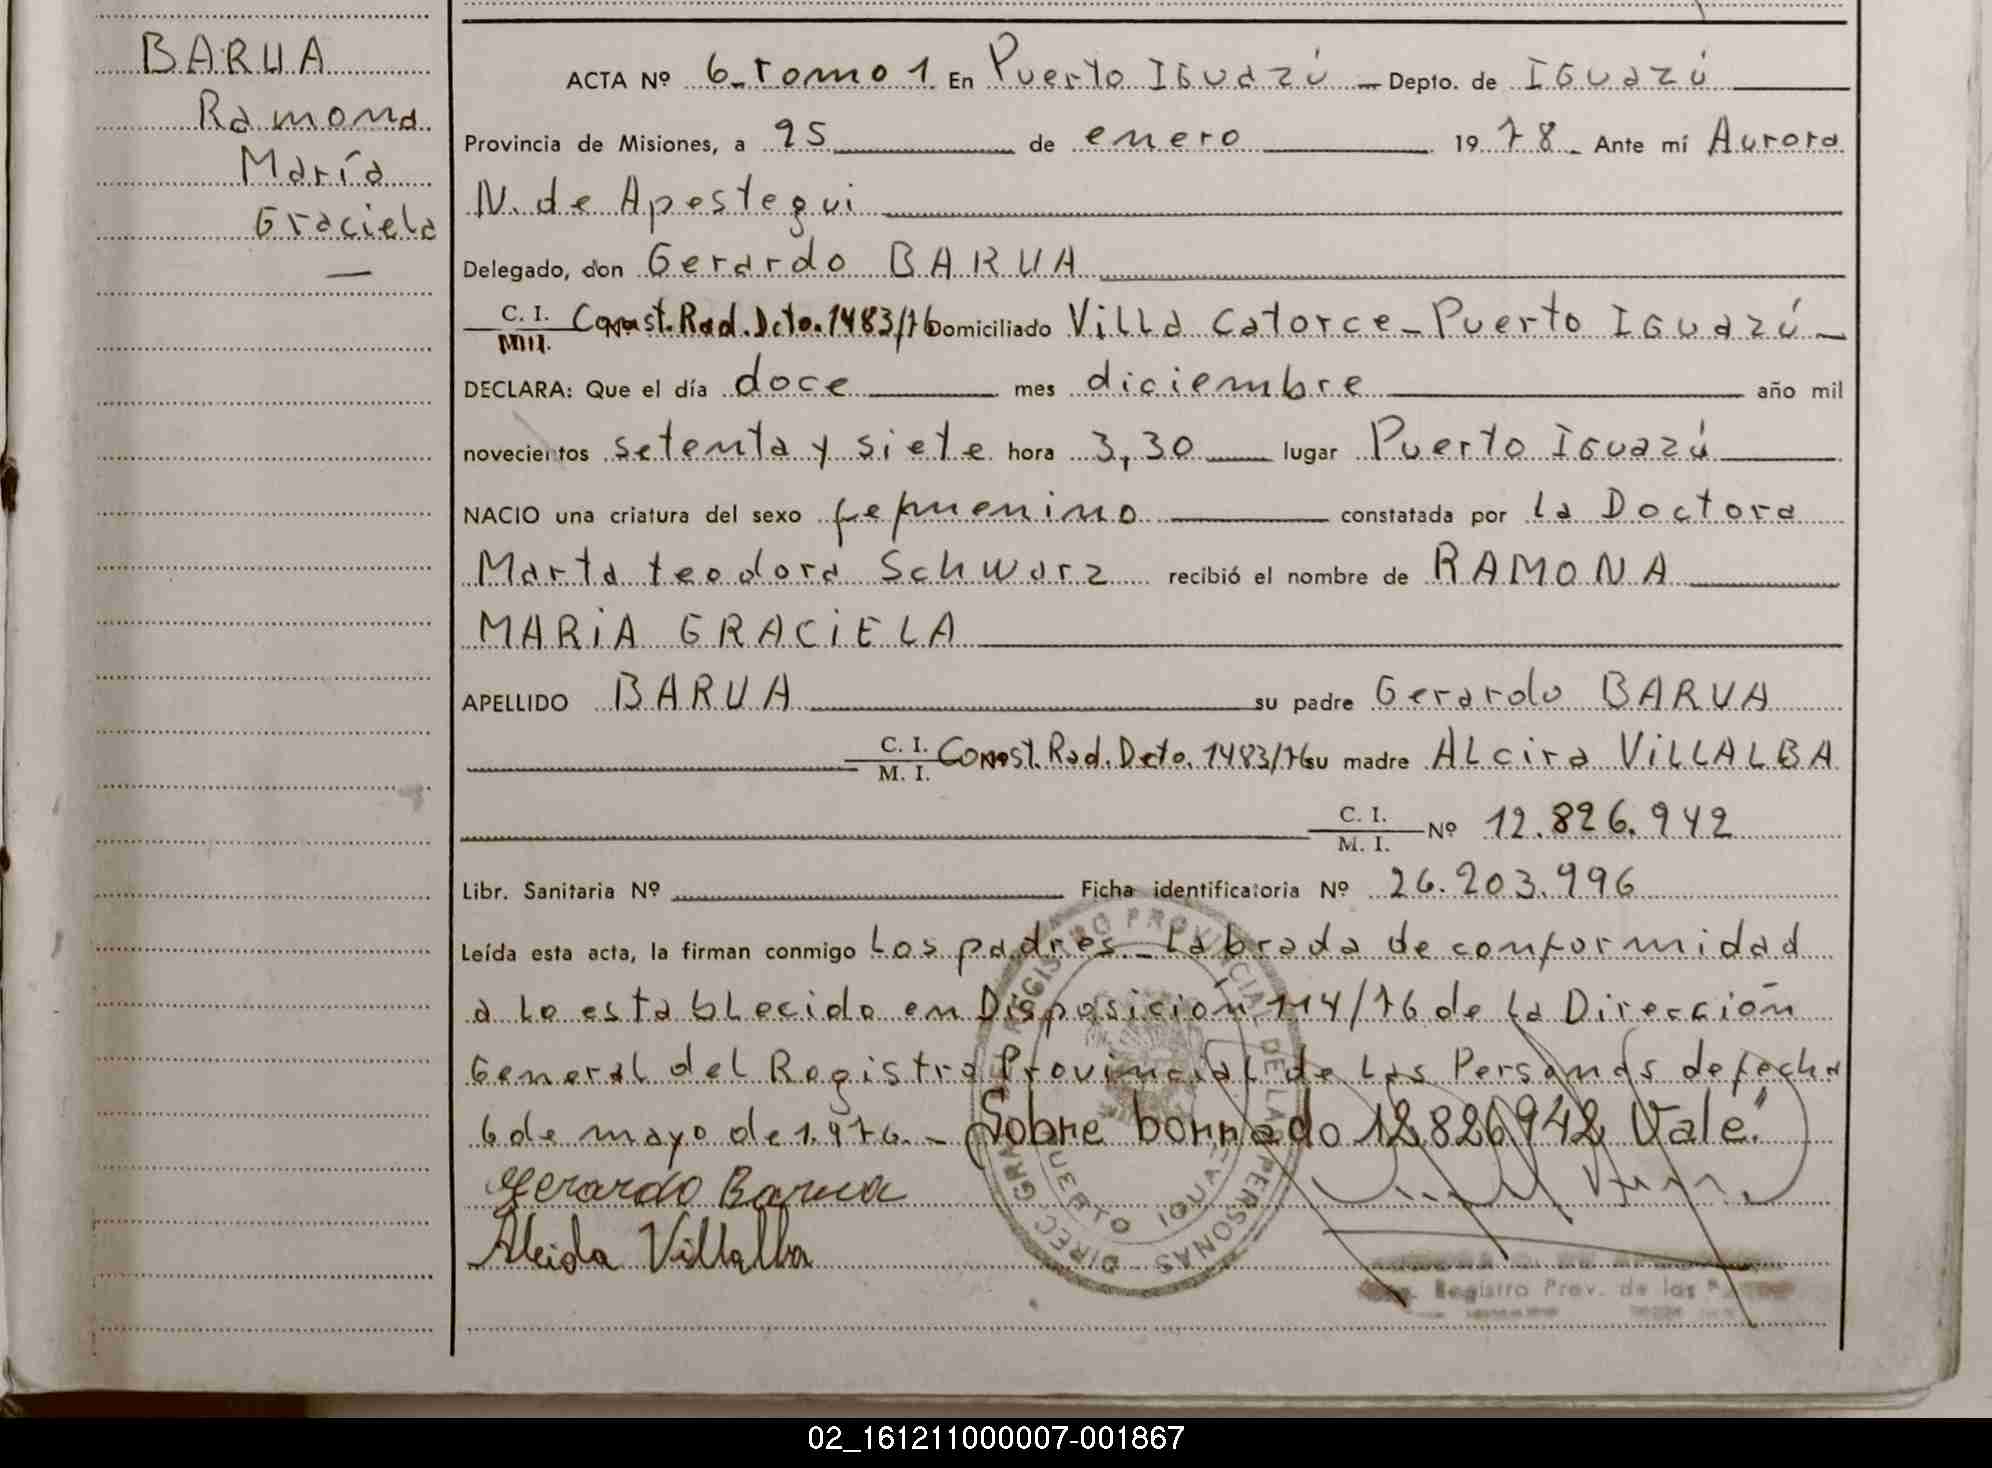 BARUA
Ramona
María
Graciela
ACTA Nº 6 - Tomo 1 En Puerto Iguazú - Depto. de Iguazú
Provincia de Misiones, a 25 de enero 1978 Ante mí Aurora
N. de Apestegui
Delegado, don Gerardo BARUA
C. I. Const. Rad. Dcto. 1483/76 Domiciliado Villa Catorce - Puerto Iguazú -
DECLARA: Que el día doce mes diciembre año mil
novecientos setenta y siete hora 3,30 lugar Puerto Iguazú
NACIO una criatura del sexo femenino constatada por la Doctora
Marta teodora Schwarz recibió el nombre de RAMONA
MARIA GRACIELA
APELLIDO BARUA su padre Gerardo BARUA
C. I. / M. I. Const. Rad. Dcto. 1483/76 su madre ALcira VILLALBA
C. I. / M. I. Nº 12.826.942
Libr. Sanitaria Nº Ficha identificatoria Nº 26.203.996
Leída esta acta, la firman conmigo Los padres - Labrada de conformidad
a lo establecido en Disposición 114/76 de la Dirección
General del Registro Provincial de Las Personas de fecha
6 de mayo de 1.976. - Sobre borrado 12826942 Vale"
Gerardo Barua
Alcida Villalba
DIREC. GRAL. REGISTRO PROVINCIAL DE LAS PERSONAS
PUERTO IGUAZU
Registro Prov. de las
02_161211000007-001867